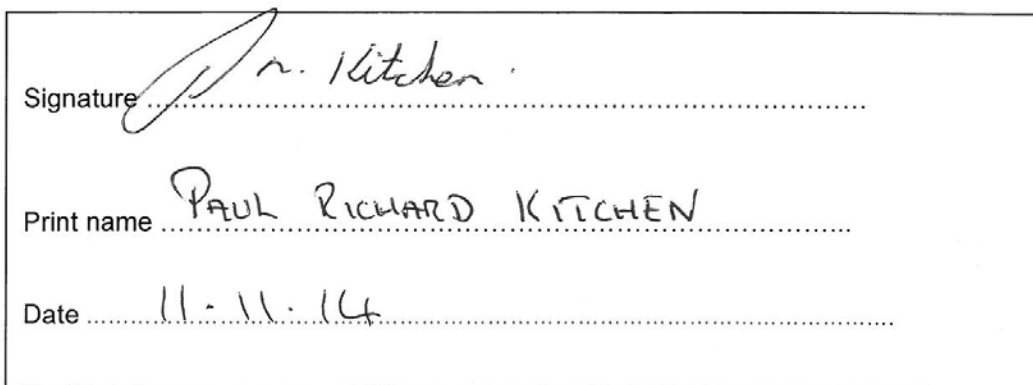 Signature P r. Kitchen.
Print name PAUL RICHARD KITCHEN
Date 11.11.14